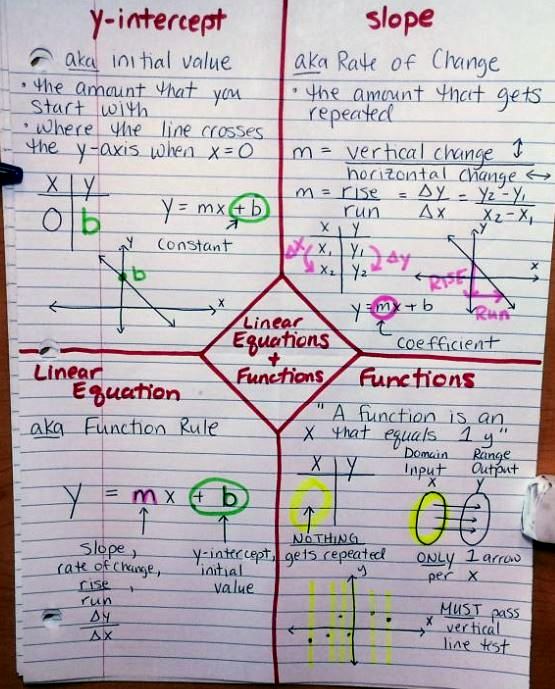 y-intercept
aka initial value
• the amount that you
start with
• where the line crosses
the y-axis when x=0
X Y
O b
y = mx + b
constant
y
b
x
slope
aka Rate of Change
• the amount that gets
repeated
m = vertical change ↕
horizontal change ↔
m = rise = Δy = y₂-y₁
run Δx x₂-x₁
X Y
ΔX X₁ Y₁ ΔY
X₂ Y₂
y
x
RISE
Run
y = mx + b
coefficient
Linear
Equations
+
Functions
Linear
Equation
aka Function Rule
y = mx + b
slope,
rate of change,
rise,
run
Δy
Δx
y-intercept,
initial
value
Functions
"A function is an
X that equals 1 y"
X Y
NOTHING
gets repeated
Domain Range
Input Output
X Y
ONLY 1 arrow
per x
y
x
MUST pass
vertical
line test